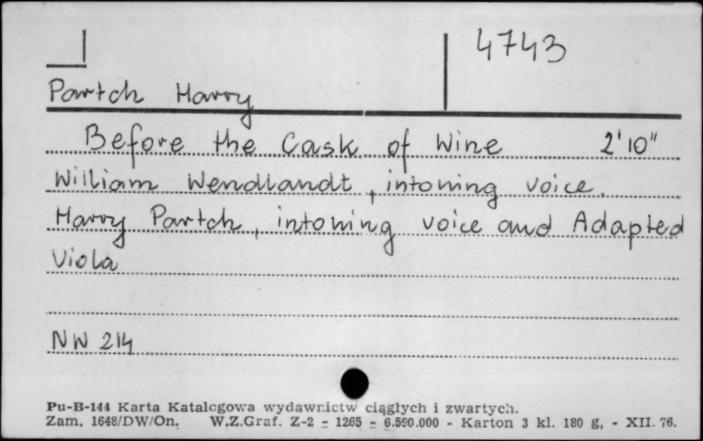 4743
Partch Harry
Before the Cask of Wine 2'10"
William Wendlandt, intoning voice.
Harry Partch, intoning voice and Adapted
Viola
NW 214
Pu-B-144 Karta Katalogowa wydawnictw ciągłych i zwartych.
Zam. 1648/DW/On. W.Z.Graf. Z-2 - 1265 - 6.590.000 - Karton 3 kl. 180 g, - XII. 76.